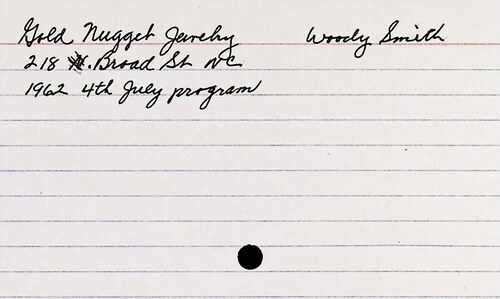 Gold Nugget Jewelry Woody Smith
218 N. Broad St NC
1962 4th July program